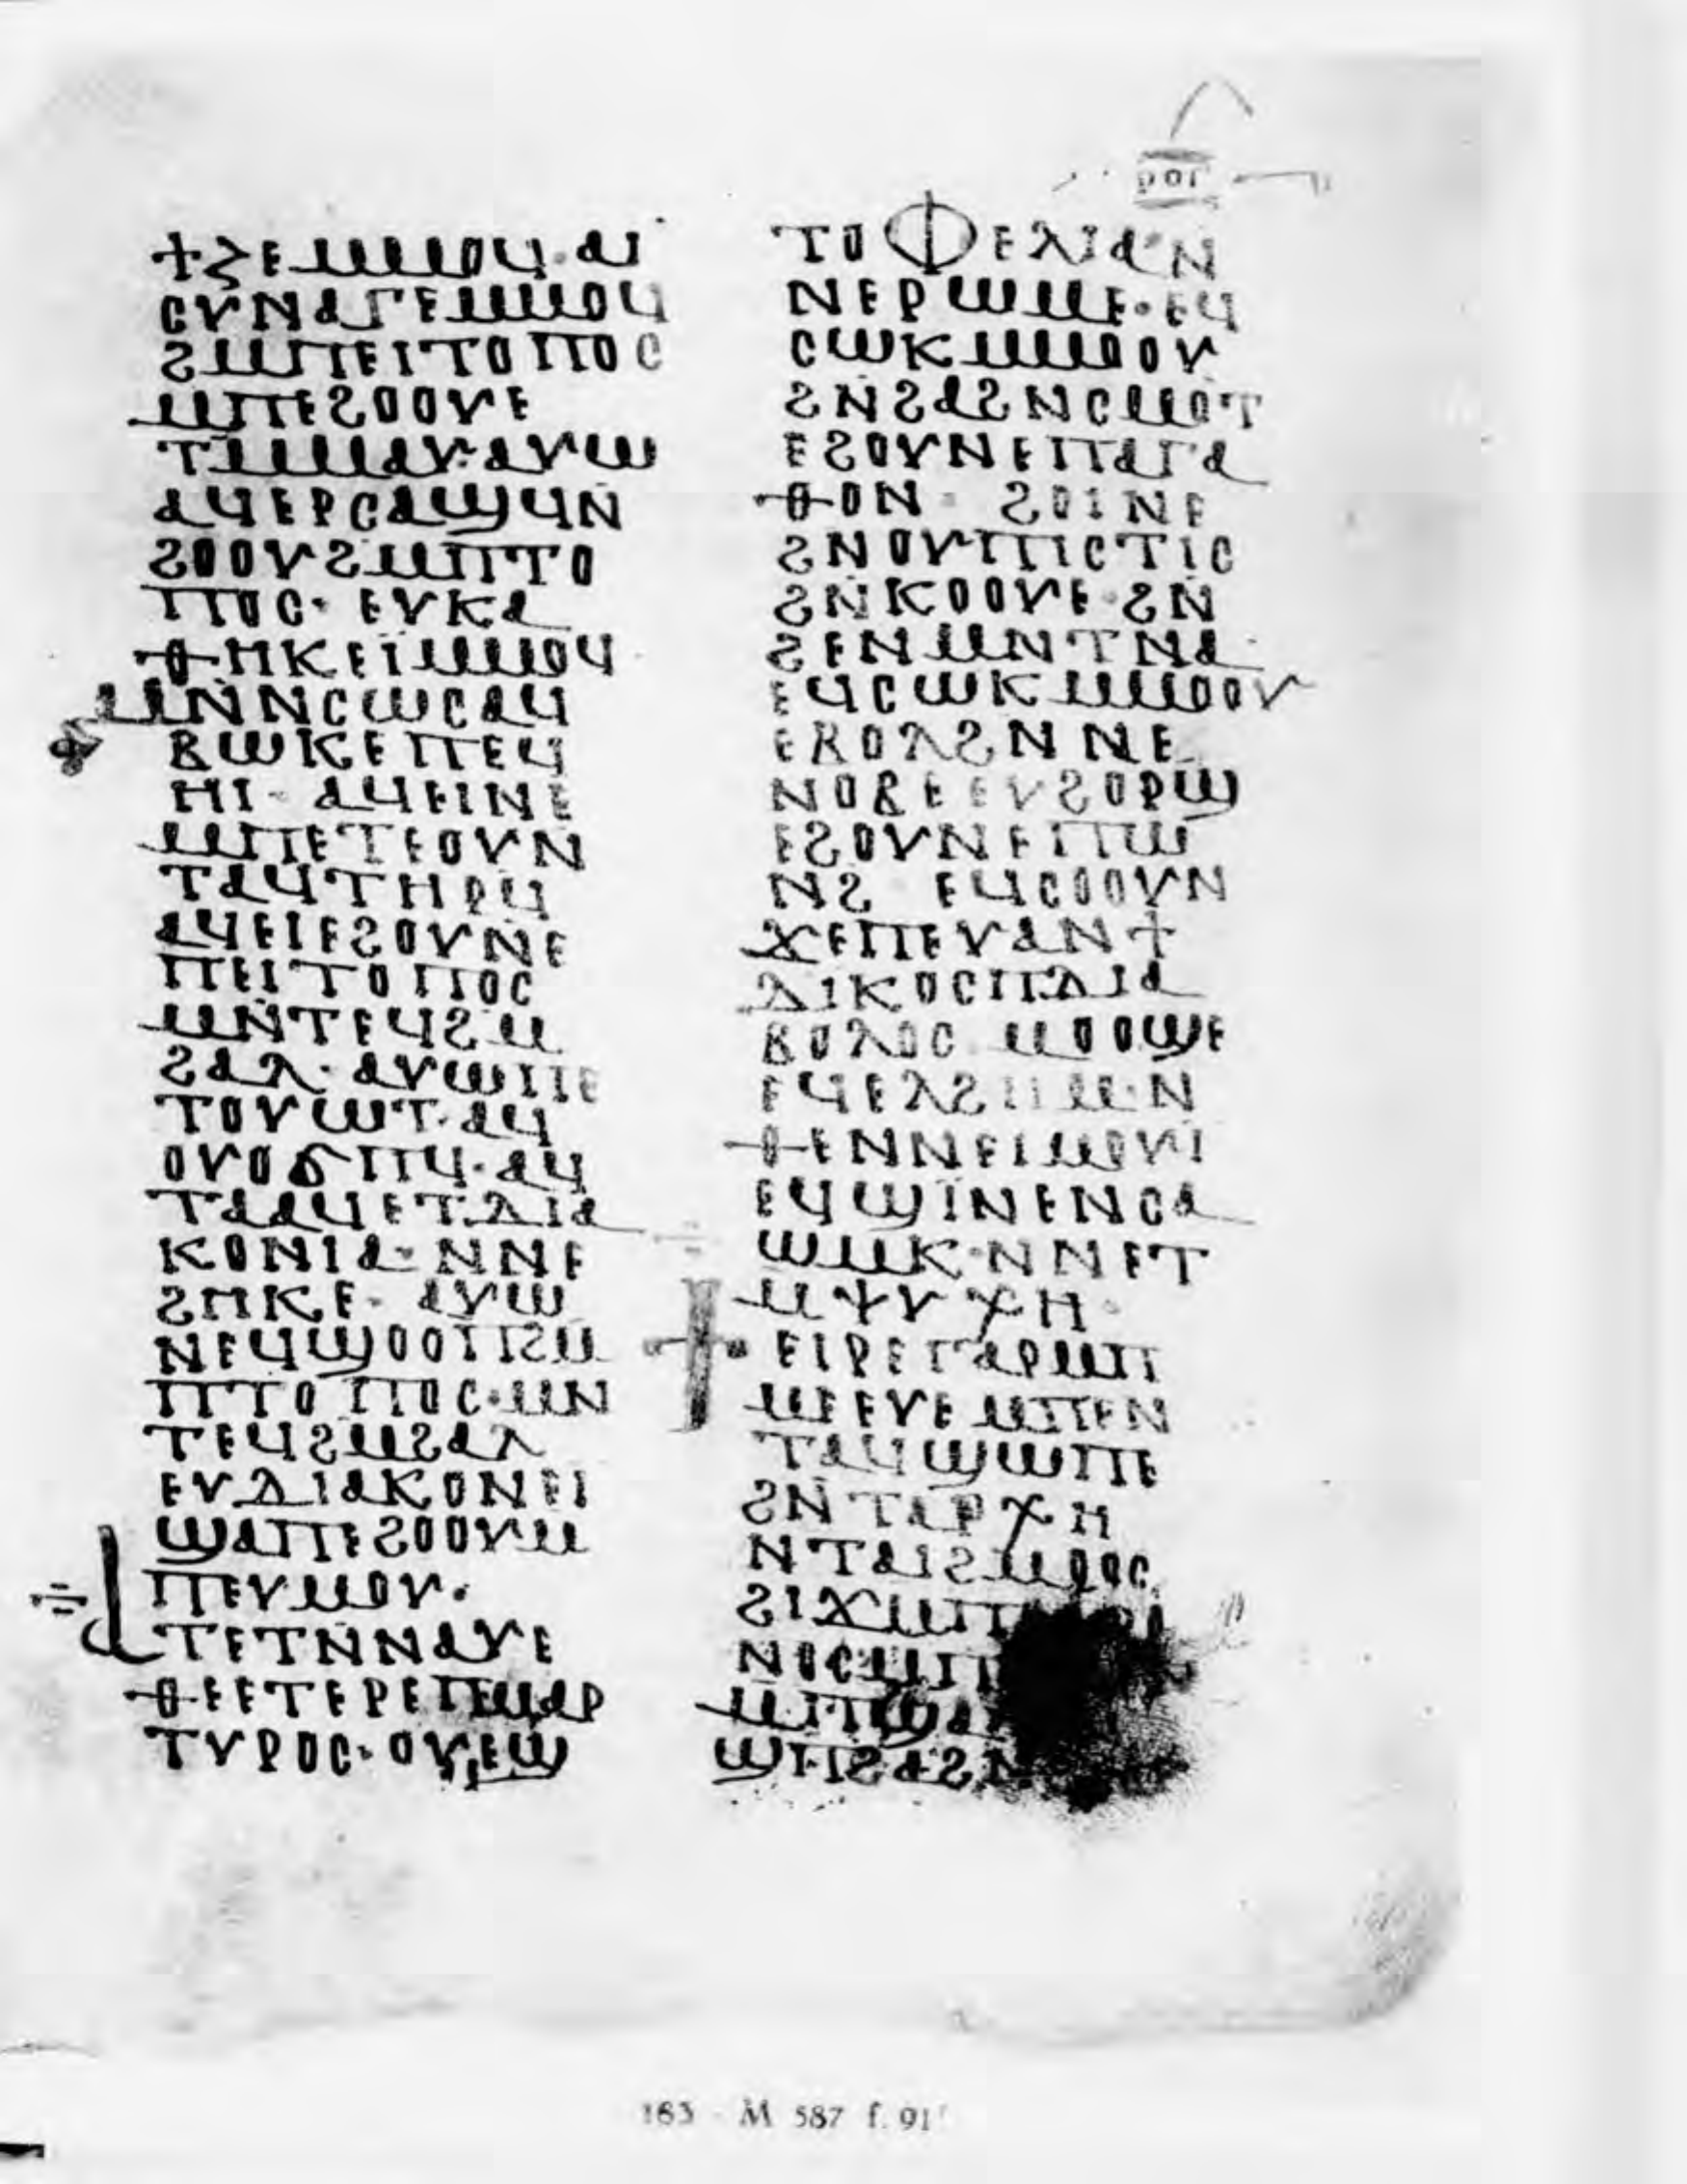 ϯϩⲉⲙⲙⲟϥ· ⲁⲓ
ⲥⲩⲛⲁⲅⲉⲙⲙⲟϥ
ϩⲙⲡⲉⲓⲧⲟⲡⲟⲥ
ⲙⲡⲉϩⲟⲟⲩⲉ
ⲧⲙⲙⲁⲩ· ⲁⲩⲱ
ⲁϥⲉⲣⲥⲁϣϥⲛ
ϩⲟⲟⲩϩⲙⲡⲧⲟ
ⲡⲟⲥ· ⲉⲩⲕⲁ
ⲑⲏⲕⲉⲓ̈ⲙⲙⲟϥ
ⲙⲛ̄ⲛⲥⲱⲥⲁϥ
ⲃⲱⲕⲉⲡⲉϥ
ⲏⲓ· ⲁϥⲉⲓⲛⲉ
ⲙⲡⲉⲧⲉⲟⲩⲛ
ⲧⲁϥⲧⲏⲣϥ
ⲁϥⲉⲓⲉϩⲟⲩⲛⲉ
ⲡⲉⲓⲧⲟⲡⲟⲥ
ⲙⲛ̄ⲧⲉϥϩⲙ
ϩⲁⲗ· ⲁⲩⲱⲡⲉ
ⲧⲟⲩⲱⲧ· ⲁϥ
ⲟⲩⲟϭⲡϥ· ⲁϥ
ⲧⲁⲁϥⲉⲧⲇⲓⲁ
ⲕⲟⲛⲓⲁ· ⲛⲛⲉ
ϩⲏⲕⲉ· ⲁⲩⲱ
ⲛⲉϥϣⲟⲟⲡϩⲙ
ⲡⲧⲟⲡⲟⲥ· ⲙⲛ
ⲧⲉϥϩⲙϩⲁⲗ
ⲉⲩⲇⲓⲁⲕⲟⲛⲉⲓ
ϣⲁⲡⲉϩⲟⲟⲩⲙ
ⲡⲉⲩⲙⲟⲩ·
ⲁⲧⲉⲧⲛ̄ⲛⲁⲩⲉ
ⲑⲉⲉⲧⲉⲣⲉⲡⲉⲙⲁⲣ
ⲧⲩⲣⲟⲥ· ⲟⲩⲉϣ
ⲣⲟⲅ
ⲧⲟⲫⲉⲗⲓⲁⲛ
ⲛⲉⲣⲱⲙⲉ· ⲉϥ
ⲥⲱⲕⲙⲙⲟⲟⲩ
ϩⲛ̄ϩⲁϩⲛⲥⲙⲟⲧ
ⲉϩⲟⲩⲛⲉⲡⲁⲅⲁ
ⲑⲟⲛ· ϩⲟⲓⲛⲉ
ϩⲛⲟⲩⲡⲓⲥⲧⲓⲥ
ϩⲛ̄ⲕⲟⲟⲩⲉ· ϩⲛ
ϩⲉⲛⲙⲛⲧⲛⲁ·
ⲉϥⲥⲱⲕⲙⲙⲟⲟⲩ
ⲉⲃⲟⲗϩⲛ ⲛⲉ
ⲛⲟⲃⲉⲉⲩϩⲟⲣϣ
ⲉϩⲟⲩⲛⲉⲡⲱ
ⲛϩ ⲉϥⲥⲟⲟⲩⲛ
ϫⲉⲡⲉⲩⲁⲛϯ
ⲇⲓⲕⲟⲥⲡⲇⲓⲁ
ⲃⲟⲗⲟⲥ ⲙⲟⲟϣⲉ
ⲉϥⲉⲗϩⲏⲙ· ⲛ
ⲑⲉⲛⲛⲉⲓⲙⲟⲩⲓ
ⲉϥϣⲓⲛⲉⲛⲥⲁ
ⲱⲙⲕ· ⲛⲛⲉⲧ
ⲙⲯⲩⲭⲏ·
ⲉⲓⲣⲉⲅⲁⲣⲙⲡ
ⲙⲉⲉⲩⲉ ⲙⲡⲉⲛ
ⲧⲁϥϣⲱⲡⲉ
ϩⲛ̄ ⲧⲁⲣⲭⲏ
ⲛⲧⲁⲓϩⲙⲟⲟⲥ
ϩⲓϫⲙⲡ
ⲛⲟⲥⲙⲡ
ⲙⲡϣⲁ
ϣⲏⲡϩⲁϩⲛ
163 - M 587 f. 91ʳ